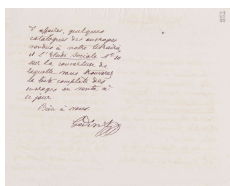 d'affaires, quelques
catalogues des ouvrages
vendus à notre librairie
et l'Étude Sociale N° 10
sur la couverture de
laquelle vous trouverez
la liste complète des
ouvrages en vente à
ce jour.
Bien à vous
Godin